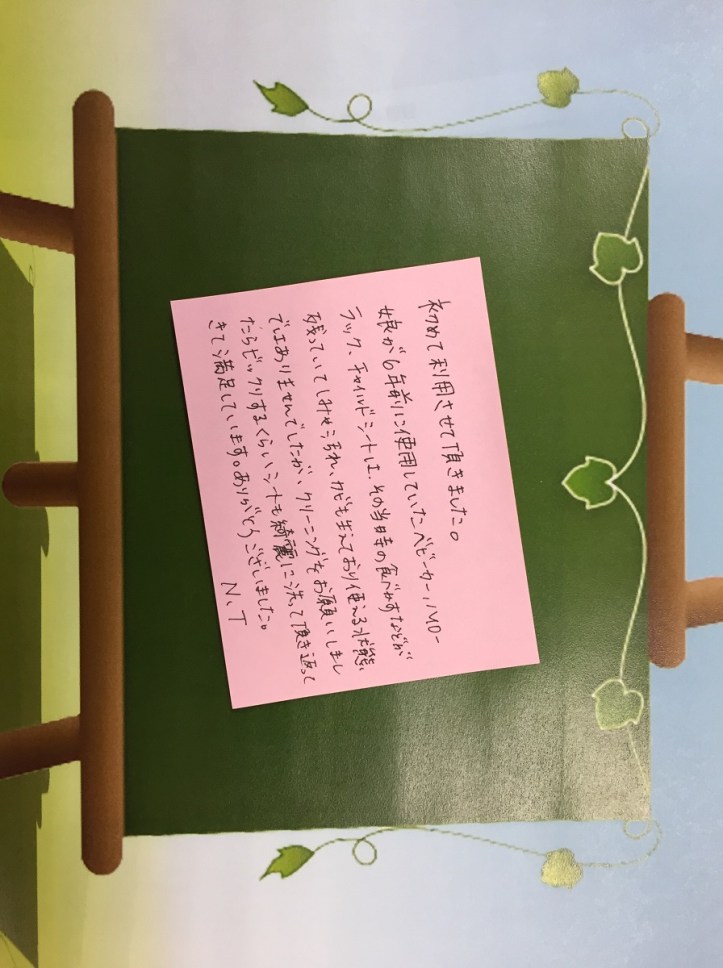 初めて利用させて頂きました。
娘が6年前に使用していたベビーカー、ハイロー
ラック、チャイルドシートは、その当時の食べかすなどが
残っていてしみもみられ、カビも生えており使える状態
ではありませんでしたが、クリーニングをお願いしまし
たらビックリするくらいシートも綺麗に洗って頂き返って
きて満足しています。ありがとうございました。
N.T